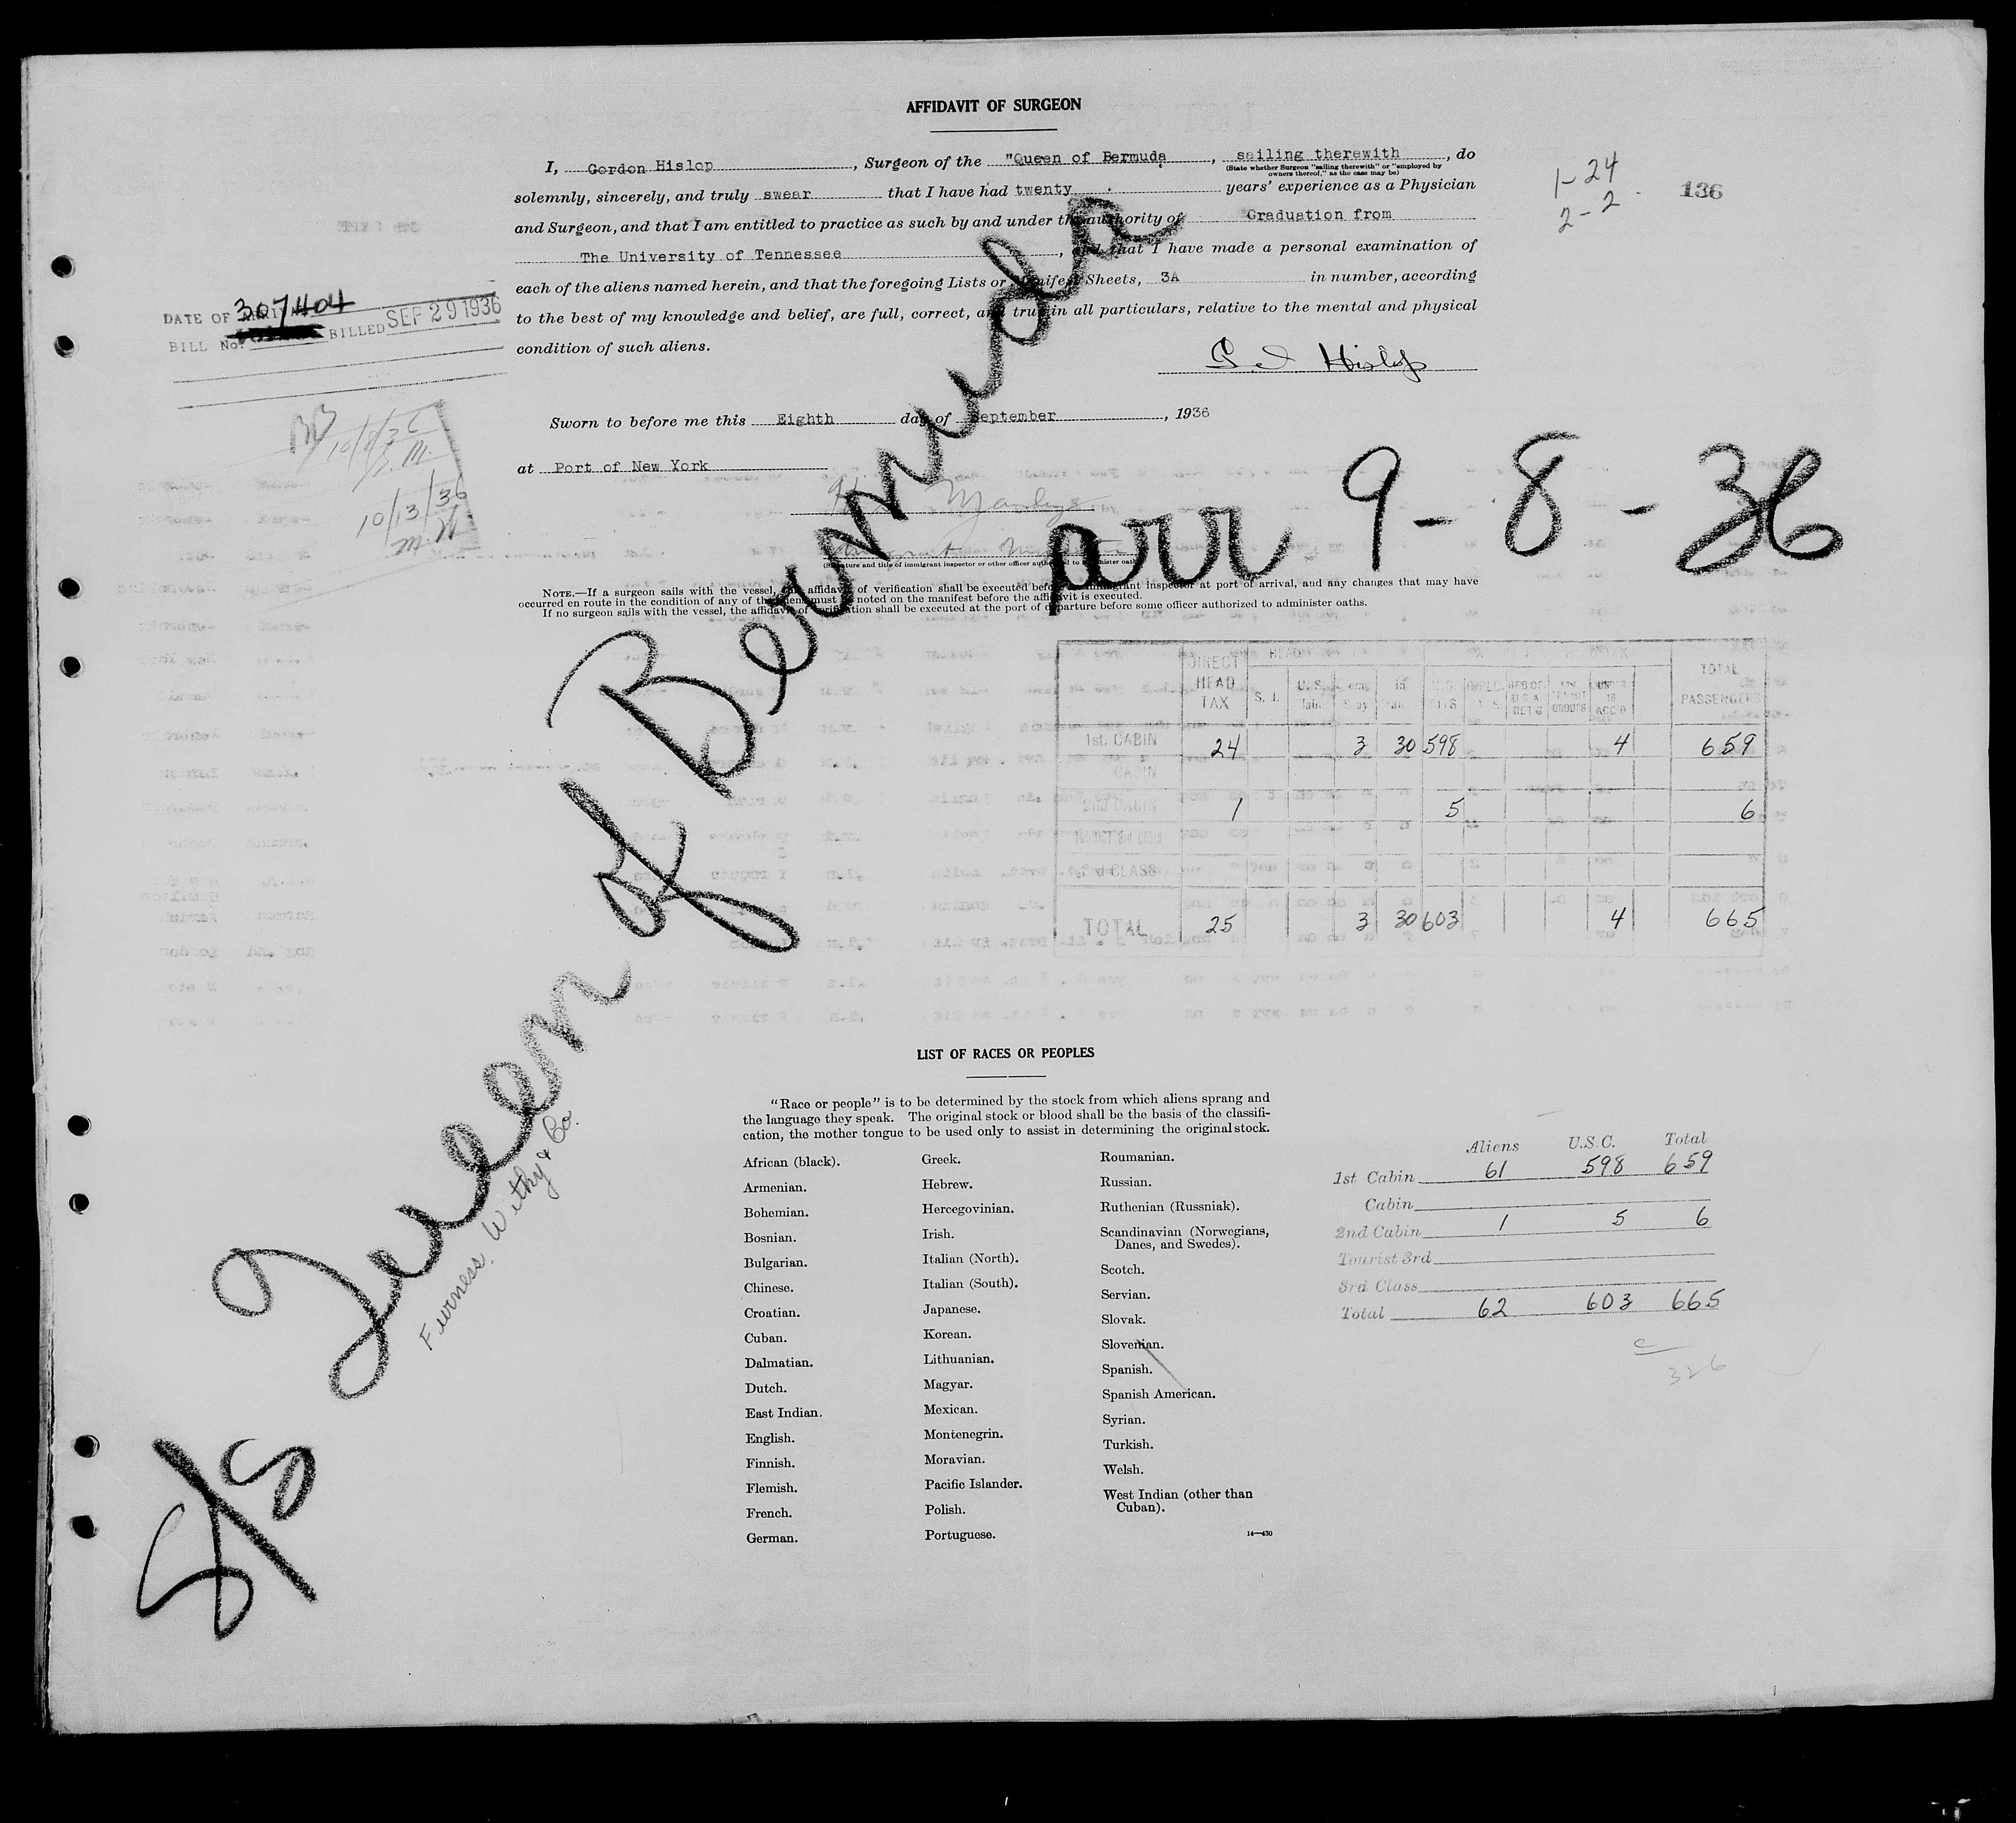 AFFIDAVIT OF SURGEON
I, Gordon Hislop, Surgeon of the "Queen of Bermuda, sailing therewith, do
(State whether Surgeon "sailing therewith" or "employed by
owners thereof," as the case may be)
solemnly, sincerely, and truly swear that I have had twenty years' experience as a Physician
and Surgeon, and that I am entitled to practice as such by and under the authority of Graduation from
The University of Tennessee, and that I have made a personal examination of
each of the aliens named herein, and that the foregoing Lists or Manifest Sheets, 3A in number, according
to the best of my knowledge and belief, are full, correct, and true in all particulars, relative to the mental and physical
condition of such aliens.
Hislop
1-24
2-2
136
307404
DATE OF
BILL No. BILLED SEP 29 1936
10/13/36
Sworn to before me this Eighth day of September, 1936
at Port of New York
(Signature and title of immigrant inspector or other officer authorized to administer oaths)
arr 9-8-36
NOTE.—If a surgeon sails with the vessel, the affidavit of verification shall be executed before an immigrant inspector at port of arrival, and any changes that may have
occurred en route in the condition of any of the aliens must be noted on the manifest before the affidavit is executed.
If no surgeon sails with the vessel, the affidavit of verification shall be executed at the port of departure before some officer authorized to administer oaths.
S/S Queen of Bermuda
Furness, Withy & Co.
DIRECT HEAD TAX S. I. U.S. TOTAL PASSENGERS
1st. CABIN 24 3 30 598 4 659
CABIN
2nd CABIN 1 5 6
TOURIST 3rd CABIN
3rd CLASS
TOTAL 25 3 30 603 4 665
LIST OF RACES OR PEOPLES
"Race or people" is to be determined by the stock from which aliens sprang and
the language they speak. The original stock or blood shall be the basis of the classifi-
cation, the mother tongue to be used only to assist in determining the original stock.
African (black).
Armenian.
Bohemian.
Bosnian.
Bulgarian.
Chinese.
Croatian.
Cuban.
Dalmatian.
Dutch.
East Indian.
English.
Finnish.
Flemish.
French.
German.
Greek.
Hebrew.
Hercegovinian.
Irish.
Italian (North).
Italian (South).
Japanese.
Korean.
Lithuanian.
Magyar.
Mexican.
Montenegrin.
Moravian.
Pacific Islander.
Polish.
Portuguese.
Roumanian.
Russian.
Ruthenian (Russniak).
Scandinavian (Norwegians,
Danes, and Swedes).
Scotch.
Servian.
Slovak.
Slovenian.
Spanish.
Spanish American.
Syrian.
Turkish.
Welsh.
West Indian (other than
Cuban).
14—430
Aliens U.S.C. Total
1st Cabin 61 598 659
Cabin
2nd Cabin 1 5 6
Tourist 3rd
3rd Class
Total 62 603 665
326